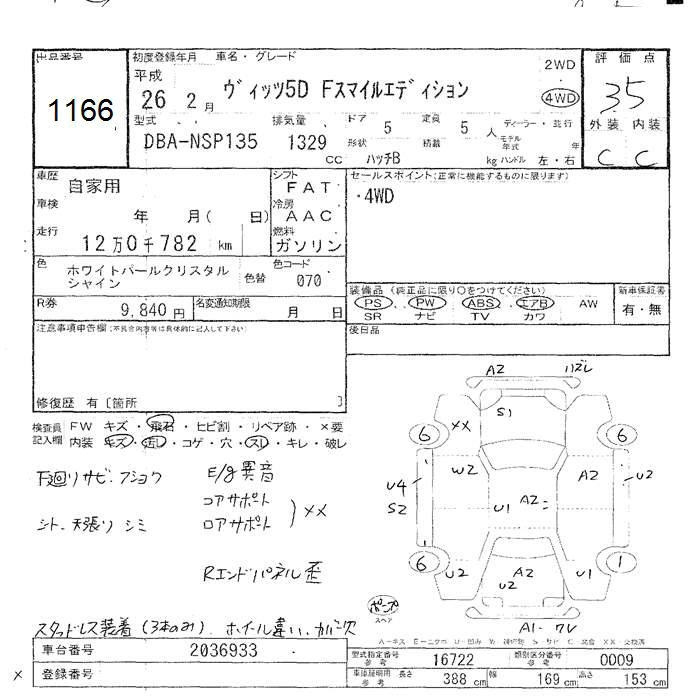 出品番号 初度登録年月 車名・グレード 評価点
1166
平成 26 2月 ヴィッツ5D Fスマイルエディション
2WD
・
4WD
35
型式 排気量 ドア 5 定員 5人 ディーラー・並行
DBA-NSP135 1329 cc
形状 ハッチB 積載 kg モデル年式 年
ハンドル 左・右
外装 内装
C C
車歴 自家用 シフト FAT
セールスポイント(正常に機能するものに限ります)
・4WD
車検 年 月( 日) 冷房 AAC
走行 12万0千782 km 燃料 ガソリン
色 ホワイトパールクリスタル
シャイン
色替 色コード 070
装備品(純正品に限り○をつけてください) 新車保証書
PS PW ABS エアB AW 有・無
SR ナビ TV カワ
R券 9,840円 名変通知期限 月 日
後日品
注意事項申告欄(不具合内容等は具体的に記入して下さい)
修復歴 有〔箇所 〕
検査員 FW キズ・飛石・ヒビ割・リペア跡・×要
記入欄 内装 キズ・汚レ・コゲ・穴・スレ・キレ・破レ
下廻リサビ、フショク E/g異音
コアサポート
ロアサポート ) XX
シート、天張リ シミ
Rエンドパネル歪
スタッドレス装着(3本のみ)、ホイール違い、カバー欠
A2 ハズレ
S1
XX
6 6
W2 A2
U4 U2
S2
U1 A2
6 1
U2 A2 U1
U2
A1- ワレ
スペア
車台番号 2036933
× 登録番号
型式指定番号 参考 16722 類別区分番号 参考 0009
車庫証明用 参考 長さ 388 cm 幅 169 cm 高さ 153 cm